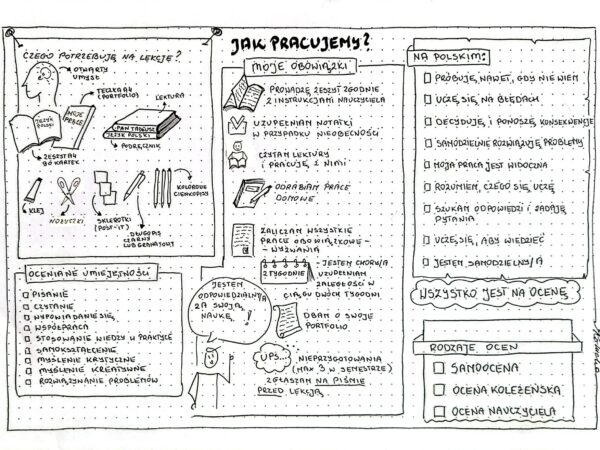 JAK PRACUJEMY?
CZEGO POTRZEBUJĘ NA LEKCJĘ?
OTWARTY
UMYSŁ
TECZKA A4
(PORTFOLIO)
LEKTURA
JĘZYK
POLSKI
MOJE
PRACE
PAN TADEUSZ
JĘZYK POLSKI
PODRĘCZNIK
ZESZYT A4
80 KARTEK
KLEJ
NOŻYCZKI
SKLEROTKI
(POST-IT)
DŁUGOPIS
CZARNY
LUB GRANATOWY
KOLOROWE
CIENKOPISY
OCENIANE UMIEJĘTNOŚCI
PISANIE
CZYTANIE
WYPOWIADANIE SIĘ
WSPÓŁPRACA
STOSOWANIE WIEDZY W PRAKTYCE
SAMOKSZTAŁCENIE
MYŚLENIE KRYTYCZNE
MYŚLENIE KREATYWNE
ROZWIĄZYWANIE PROBLEMÓW
MOJE OBOWIĄZKI
PROWADZĘ ZESZYT ZGODNIE
Z INSTRUKCJAMI NAUCZYCIELA
UZUPEŁNIAM NOTATKI
W PRZYPADKU NIEOBECNOŚCI
CZYTAM LEKTURY
I PRACUJĘ Z NIMI
ODRABIAM PRACE
DOMOWE
ZALICZAM WSZYSTKIE
PRACE OBOWIĄZKOWE -
- WYZWANIA
2 TYGODNIE
- JESTEM CHORY/A
UZUPEŁNIAM
ZALEGŁOŚCI W
CIĄGU DWÓCH TYGODNI
JESTEM
ODPOWIEDZIALNY/A
ZA SWOJĄ
NAUKĘ!
DBAM O SWOJE
PORTFOLIO
UPS...
NIEPRZYGOTOWANIA
(MAX 3 W SEMESTRZE)
ZGŁASZAM NA PIŚMIE
PRZED LEKCJĄ
NA POLSKIM:
PRÓBUJĘ NAWET, GDY NIE WIEM
UCZĘ SIĘ NA BŁĘDACH
DECYDUJĘ I PONOSZĘ KONSEKWENCJE
SAMODZIELNIE ROZWIĄZUJĘ PROBLEMY
MOJA PRACA JEST WIDOCZNA
ROZUMIEM, CZEGO SIĘ UCZĘ
SZUKAM ODPOWIEDZI I ZADAJĘ
PYTANIA
UCZĘ SIĘ, ABY WIEDZIEĆ
JESTEM SAMODZIELNY/A
WSZYSTKO JEST NA OCENĘ
RODZAJE OCEN
SAMOOCENA
OCENA KOLEŻEŃSKA
OCENA NAUCZYCIELA